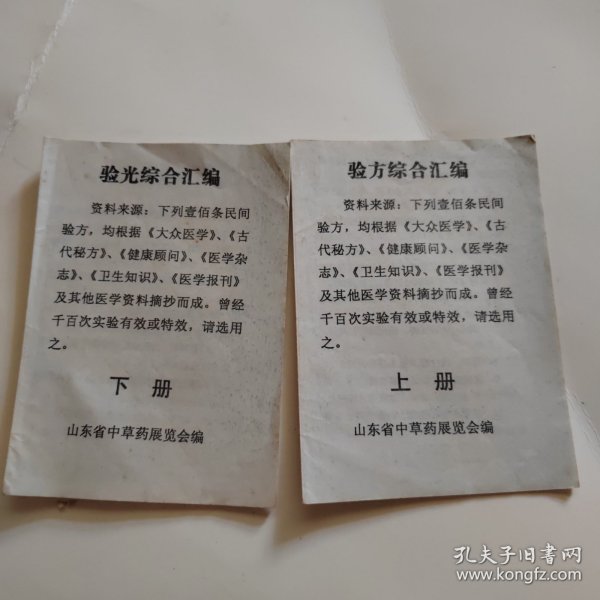 验光综合汇编
资料来源：下列壹佰条民间
验方，均根据《大众医学》、《古
代秘方》、《健康顾问》、《医学杂
志》、《卫生知识》、《医学报刊》
及其他医学资料摘抄而成。曾经
千百次实验有效或特效，请选用
之。
下册
山东省中草药展览会编
验方综合汇编
资料来源：下列壹佰条民间
验方，均根据《大众医学》、《古
代秘方》、《健康顾问》、《医学杂
志》、《卫生知识》、《医学报刊》
及其他医学资料摘抄而成。曾经
千百次实验有效或特效，请选用
之。
上册
山东省中草药展览会编
孔夫子旧书网
www.kongfz.com